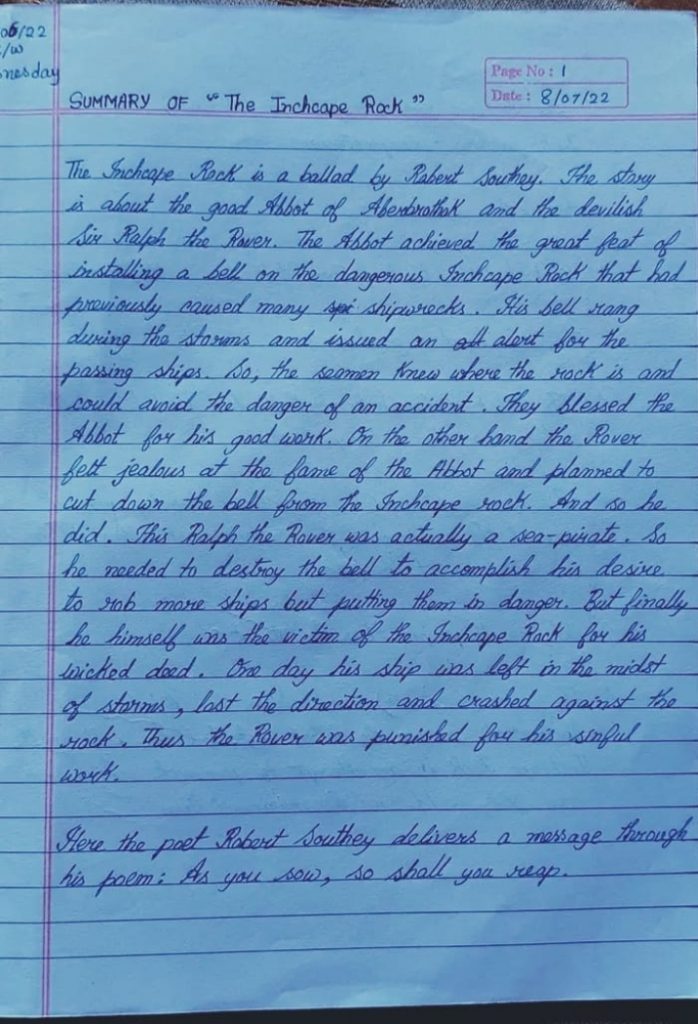 06/22
/w
nesday
Page No: 1
Date: 8/07/22
SUMMARY OF "The Inchcape Rock"
The Inchcape Rock is a ballad by Robert Southey. The story
is about the good Abbot of Aberbrothok and the devilish
Sir Ralph the Rover. The Abbot achieved the great feat of
installing a bell on the dangerous Inchcape Rock that had
previously caused many spi shipwrecks. His bell rang
during the storms and issued an alt alert for the
passing ships. So, the seamen knew where the rock is and
could avoid the danger of an accident. They blessed the
Abbot for his good work. On the other hand the Rover
felt jealous at the fame of the Abbot and planned to
cut down the bell from the Inchcape rock. And so he
did. This Ralph the Rover was actually a sea-pirate. So
he needed to destroy the bell to accomplish his desire
to rob more ships but putting them in danger. But finally
he himself was the victim of the Inchcape Rock for his
wicked deed. One day his ship was left in the midst
of storms, lost the direction and crashed against the
rock. Thus the Rover was punished for his sinful
work.
Here the poet Robert Southey delivers a message through
his poem: As you sow, so shall you reap.